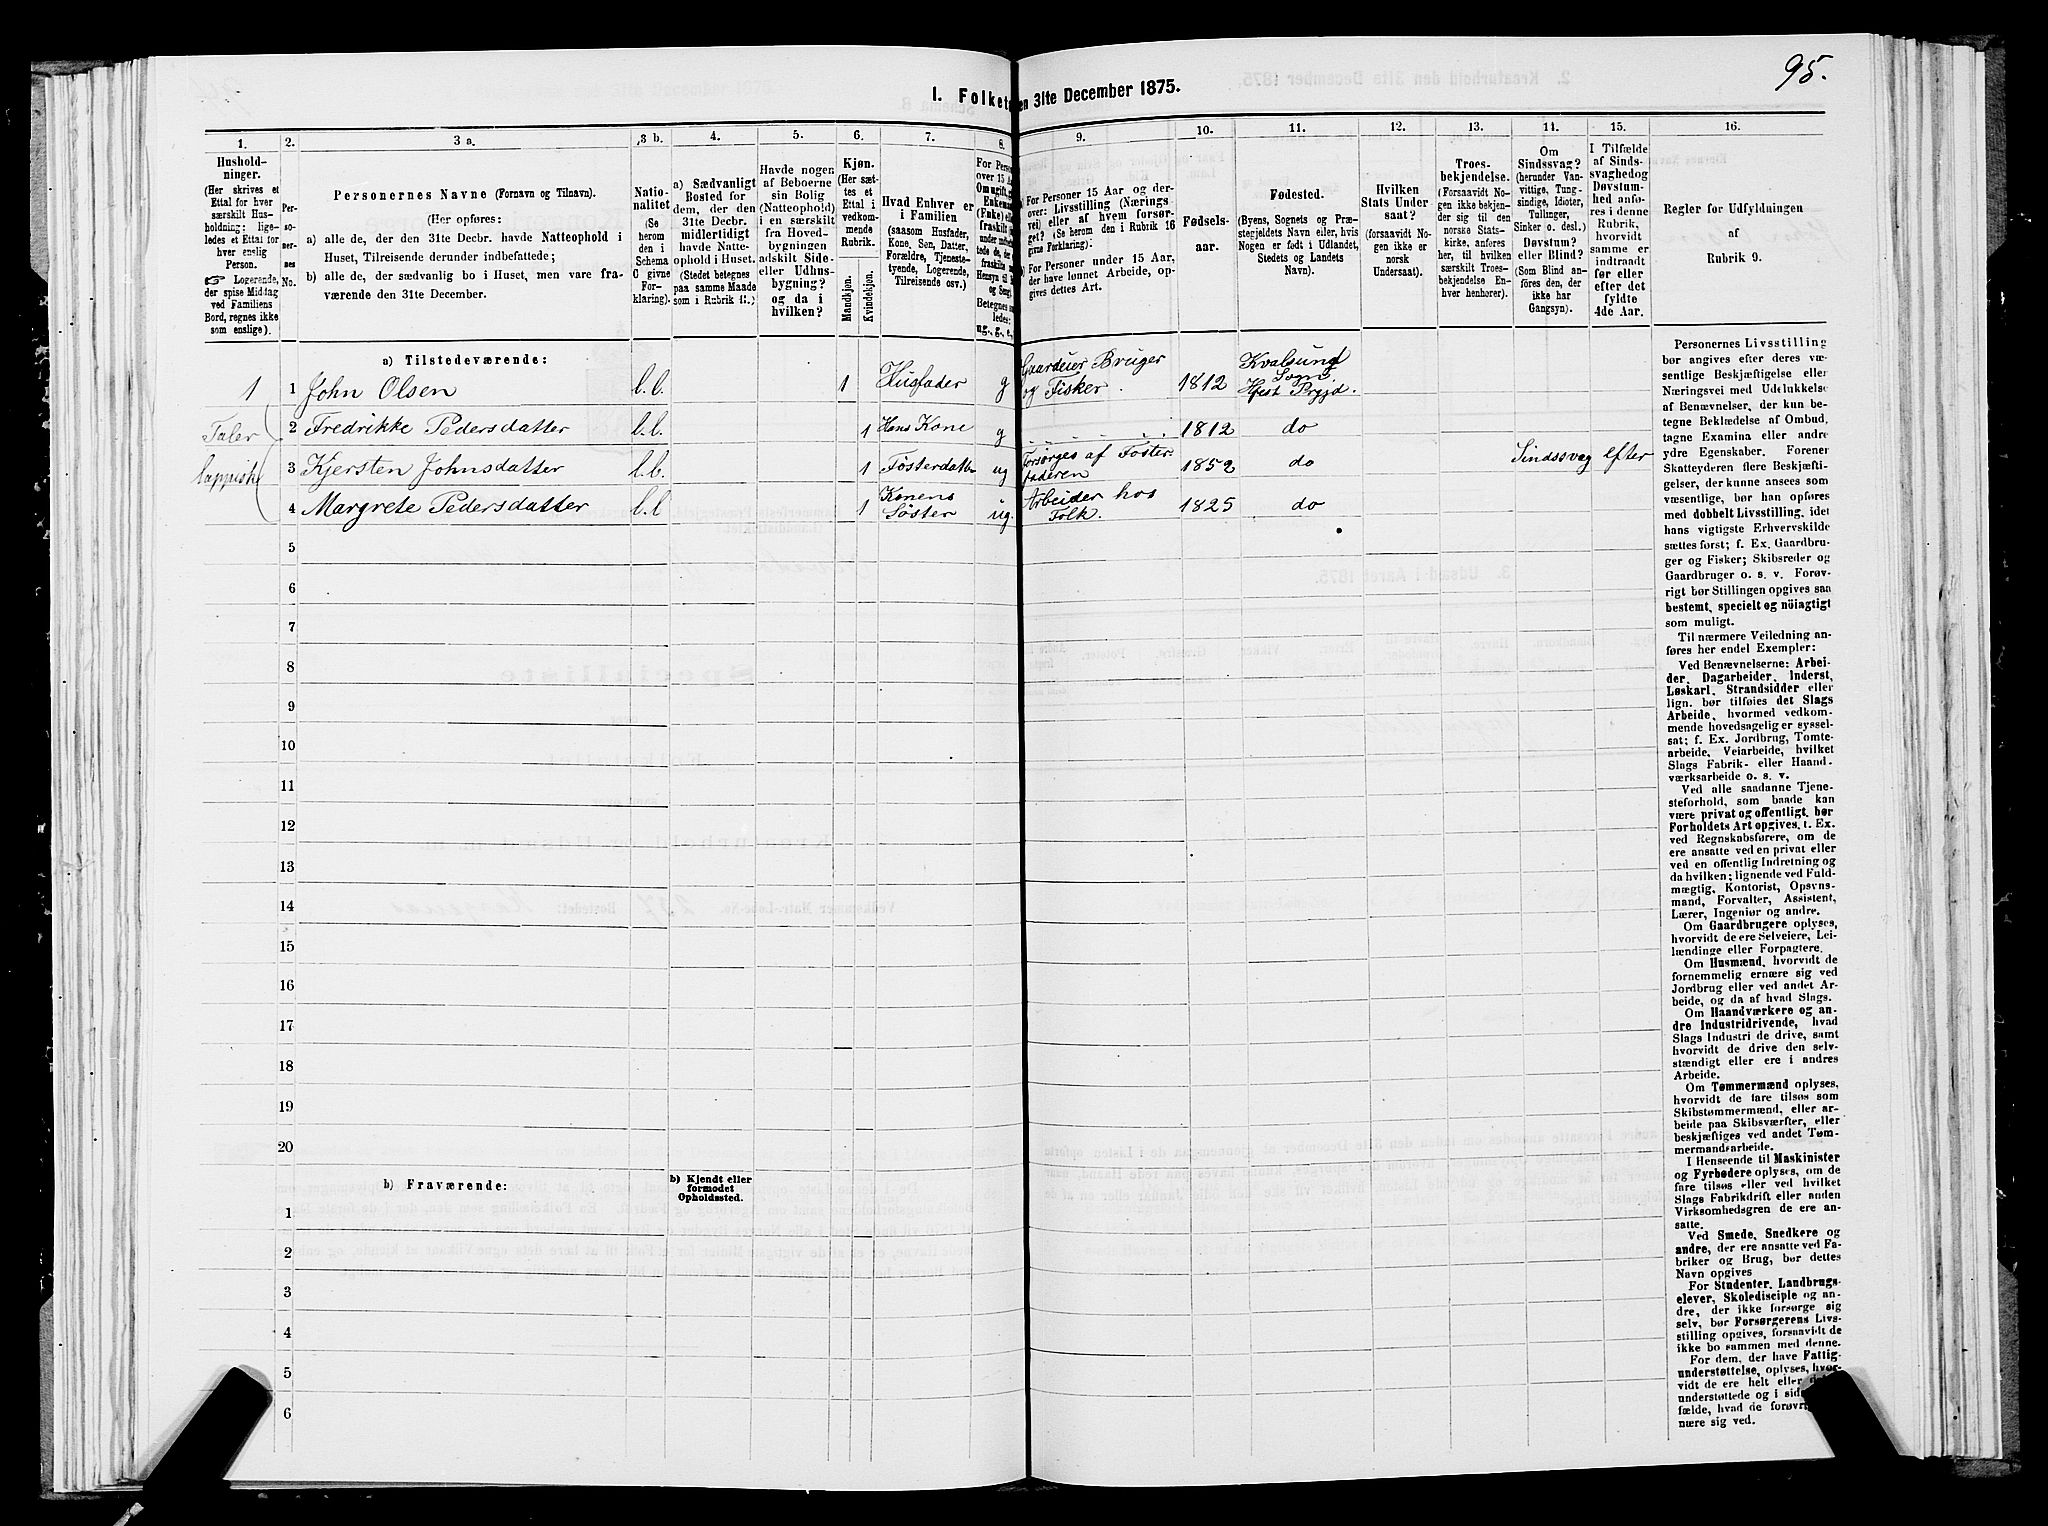 95.
I. Folketælling den 31te December 1875.
1. 2. 3 a. 3 b. 4. 5. 6. 7. 8. 9. 10. 11. 12. 13. 14. 15. 16.
Hushold-
ninger.
(Her skrives et
Ettal for hver
særskilt Hus-
holdning; lige-
ledes et Ettal for
hver enslig
Person.
☞ Logerende,
der spise Middag
ved Familiens
Bord, regnes ikke
som enslige).
Per-
so-
ner-
nes
No.
Personernes Navne (Fornavn og Tilnavn).
(Her opføres:
a) alle de, der den 31te Decbr. havde Natteophold i
Huset, Tilreisende derunder indbefattede;
b) alle de, der sædvanlig bo i Huset, men vare fra-
værende den 31te December.
Natio-
nalitet
(Se
herom
den i
Schema
C givne
For-
klaring).
a) Sædvanligt
Bosted for
dem, der den
31te Decbr.
midlertidigt
havde Natte-
ophold i Huset.
(Stedet betegnes
paa samme Maade
som i Rubrik 11.)
Havde nogen
af Beboerne
sin Bolig
(Natteophold)
i en særskilt
fra Hoved-
bygningen
adskilt Side-
eller Udhus-
bygning?
og da i
hvilken?
Kjøn.
(Her sæt-
tes et
Ettal i
vedkom-
mende
Rubrik.
Mandkjøn.
Kvindekjøn.
Hvad Enhver er
i Familien
(saasom Husfader,
Kone, Søn, Datter,
Forældre, Tjeneste-
tyende, Logerende,
Tilreisende osv.)
For Pers
over 15 A
Om ugift, g
Enkema
(Enke) ell
fraskilt
ledes:
ug., g., e.,
a) For Personer 15 Aar og der-
over: Livsstilling (Nærings-
vei) eller af hvem forsør-
get? (Se herom den i Rubrik 16
givne Forklaring):
b) For Personer under 15 Aar,
der have lønnet Arbeide, op-
gives dettes Art.
Fødsels-
aar.
Fødested.
(Byens, Sognets og Præ-
stegjeldets Navn eller, hvis
Nogen er født i Udlandet,
Stedets og Landets
Navn).
Hvilken
Stats Under-
saat?
(forsaavidt No-
gen ikke er
norsk
Undersaat).
Troes-
bekjendelse.
(Forsaavidt No-
gen ikke bekjen-
der sig til den
norske Stats-
kirke, anføres
her, til hvilken
særskilt Troes-
bekjendelse En-
hver henhører).
Om
Sindssvag?
(herunder Van-
vittige, Tung-
sindige, Idioter,
Tullinger,
Sinker o. desl.)
Døvstum?
eller Blind?
(Som Blind an-
føres den, der
ikke har
Gangsyn).
I Tilfælde
af Sinds-
svaghed og
Døvstum-
hed anfø-
res i denne
Rubrik,
hvorvidt
samme er
indtraadt
før eller
efter det
fyldte
4de Aar.
Regler for Udfyldningen
af
Rubrik 9.
a) Tilstedeværende:
1 1 John Olsen l.l. 1 Husfader g Gaardeier Bruger og Fisker. 1812 Kvalsund Sogn Hfest Prgjd.
Taler 2 Fredrikke Pedersdatter l.l. 1 Hans Kone g 1812 do
lappisk 3 Kjersten Johnsdatter l.l. 1 Fösterdatter ug Forsörges af Foster faderen 1852 do Sindssvag efter
4 Margrete Pedersdatter l.l 1 Konens Söster ug. Arbeider hos Folk. 1825 do
5
6
7
8
9
10
11
12
13
14
15
16
17
18
19
20
b) Fraværende:
b) Kjendt eller
formodet
Opholdssted.
1
2
3
4
5
6
Personernes Livsstilling
bør angives efter deres væ-
sentlige Beskjæftigelse eller
Næringsvei med Udelukkelse
af Benævnelser, der kun be-
tegne Beklædelse af Ombud,
tagne Examina eller andre
ydre Egenskaber. Forener
Skatteyderen flere Beskjæfti-
gelser, der kunne ansees som
væsentlige, bør han opføres
med dobbelt Livsstilling, idet
hans vigtigste Erhvervskilde
sættes først; f. Ex. Gaardbru-
ger og Fisker; Skibsreder og
Gaardbruger o. s. v. Forøv-
rigt bør Stillingen opgives saa
bestemt, specielt og nøiagtigt
som muligt.
Til nærmere Veiledning an-
føres her endel Exempler:
Ved Benævnelserne: Arbei-
der, Dagarbeider, Inderst,
Løskarl, Strandsidder eller
lign. bør tilføies det Slags
Arbeide, hvormed vedkom-
mende hovedsagelig er syssel-
sat; f. Ex. Jordbrug, Tomte-
arbeide, Veiarbeide, hvilket
Slags Fabrik- eller Haand-
værksarbeide o. s. v.
Ved alle saadanne Tjene-
steforhold, som baade kan
være privat og offentligt, bør
Forholdets Art opgives, t. Ex.
ved Regnskabsførere, om de
ere ansatte ved en privat eller
ved en offentlig Indretning og
da hvilken; lignende ved Fuld-
mægtig, Kontorist, Opsyns-
mand, Forvalter, Assistent,
Lærer, Ingeniør og andre.
Om Gaardbrugere oplyses,
hvorvidt de ere Selveiere, Lei-
lændinge eller Forpagtere.
Om Husmænd, hvorvidt de
fornemmelig ernære sig ved
Jordbrug eller ved andet Ar-
beide, og da af hvad Slags.
Om Haandværkere og an-
dre Industridrivende, hvad
Slags Industri de drive, samt
hvorvidt de drive den selv-
stændigt eller ere i andres
Arbeide.
Om Tømmermænd oplyses,
hvorvidt de fare tilsøs som
Skibstømmermænd, eller ar-
beide paa Skibsværfter, eller
beskjæftiges ved andet Tøm-
mermandsarbeide.
I Henseende til Maskinister
og Fyrbødere oplyses, om de
fare tilsøs eller ved hvilket
Slags Fabrikdrift eller anden
Virksomhedsgren de ere an-
satte.
Ved Smede, Snedkere og
andre, der ere ansatte ved Fa-
briker og Brug, bør dettes
Navn opgives
For Studenter, Landbrugs-
elever, Skoledisciple og an-
dre, der ikke forsørge sig
selv, bør Forsørgerens Livs-
stilling opgives, forsaavidt de
ikke bo sammen med denne.
For dem, der have Fattig-
understøttelse, oplyses, hvor-
vidt de ere helt eller
understøttede og i sid
fælde, hvad de forøv
nære sig ved.